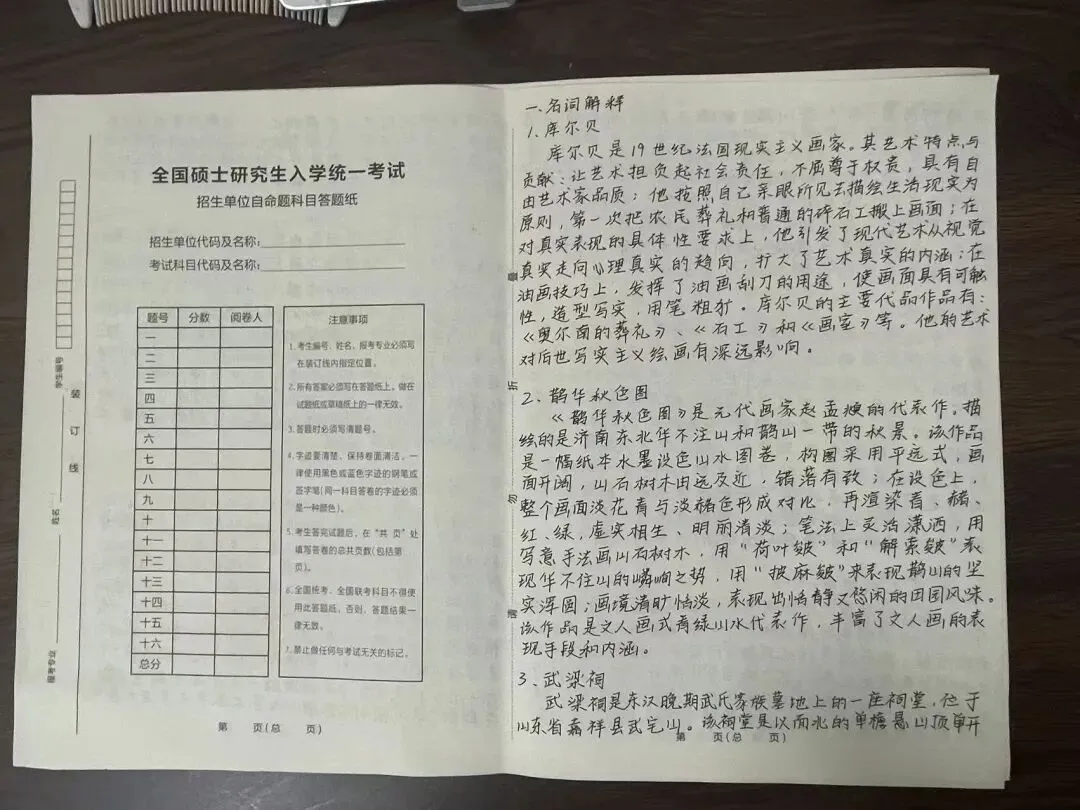 全国硕士研究生入学统一考试
招生单位自命题科目答题纸
招生单位代码及名称:
考试科目代码及名称:
题号 分数 阅卷人
一
二
三
四
五
六
七
八
九
十
十一
十二
十三
十四
十五
十六
总分
注意事项
1.考生编号、姓名、报考专业必须写
在装订线内指定位置。
2.所有答案必须写在答题纸上。做在
试题纸或草稿纸上的一律无效。
3.答题时必须写清题号。
4.字迹要清楚、保持卷面清洁。一
律使用黑色或蓝色字迹的钢笔或
签字笔(同一科目答卷的字迹必须
是一种颜色)。
5.考生答完试题后,在“共 页”处
填写答卷的总共页数(包括第
页)。
6.全国统考、全国联考科目不得使
用此答题纸,否则,答题结果一
律无效。
7.禁止做任何与考试无关的标记。
第 页(总 页)
考生编号
姓名
报考专业
装
订
线
一、名词解释
1、库尔贝
库尔贝是19世纪法国现实主义画家。其艺术特点与
贡献、让艺术担负起社会责任,不屈尊于权贵,具有自
由艺术家品质;他按照自己亲眼所见去描绘生活现实为
原则,第一次把农民葬礼和普通的碎石工搬上画面;在
对真实表现的具体性要求上,他引发了现代艺术从视觉
真实走向心理真实的趋向,扩大了艺术真实的内涵;在
油画技巧上,发挥了油画刮刀的用途,使画面具有可触
性,造型写实,用笔粗犷。库尔贝的主要代品作品有:
《奥尔南的葬礼》、《石工》和《画室》等。他的艺术
对后世写实主义绘画有深远影响。
2、鹊华秋色图
《鹊华秋色图》是元代画家赵孟頫的代表作。描
绘的是济南东北华不注山和鹊山一带的秋景。该作品
是一幅纸本水墨设色山水图卷,构图采用平远式,画
面开阔,山石树木由远及近,错落有致;在设色上,
整个画面淡花青与淡赭色形成对比,再渲染青、赭、
红、绿,虚实相生、明丽清淡;笔法上灵活潇洒,用
写意手法画山石树木,用“荷叶皴”和“解索皴”表
现华不住山的嶙峋之势,用“披麻皴”来表现鹊山的坚
实浑圆;画境清旷恬淡,表现出恬静又悠闲的田园风味。
该作品是文人画式青绿山水代表作,丰富了文人画的表
现手段和内涵。
3、武梁祠
武梁祠是东汉晚期武氏家族墓地上的一座祠堂,位于
山东省嘉祥县武宅山。该祠堂是以面北的单檐悬山顶单开
第 页(总 页)
叠
折
勿
请